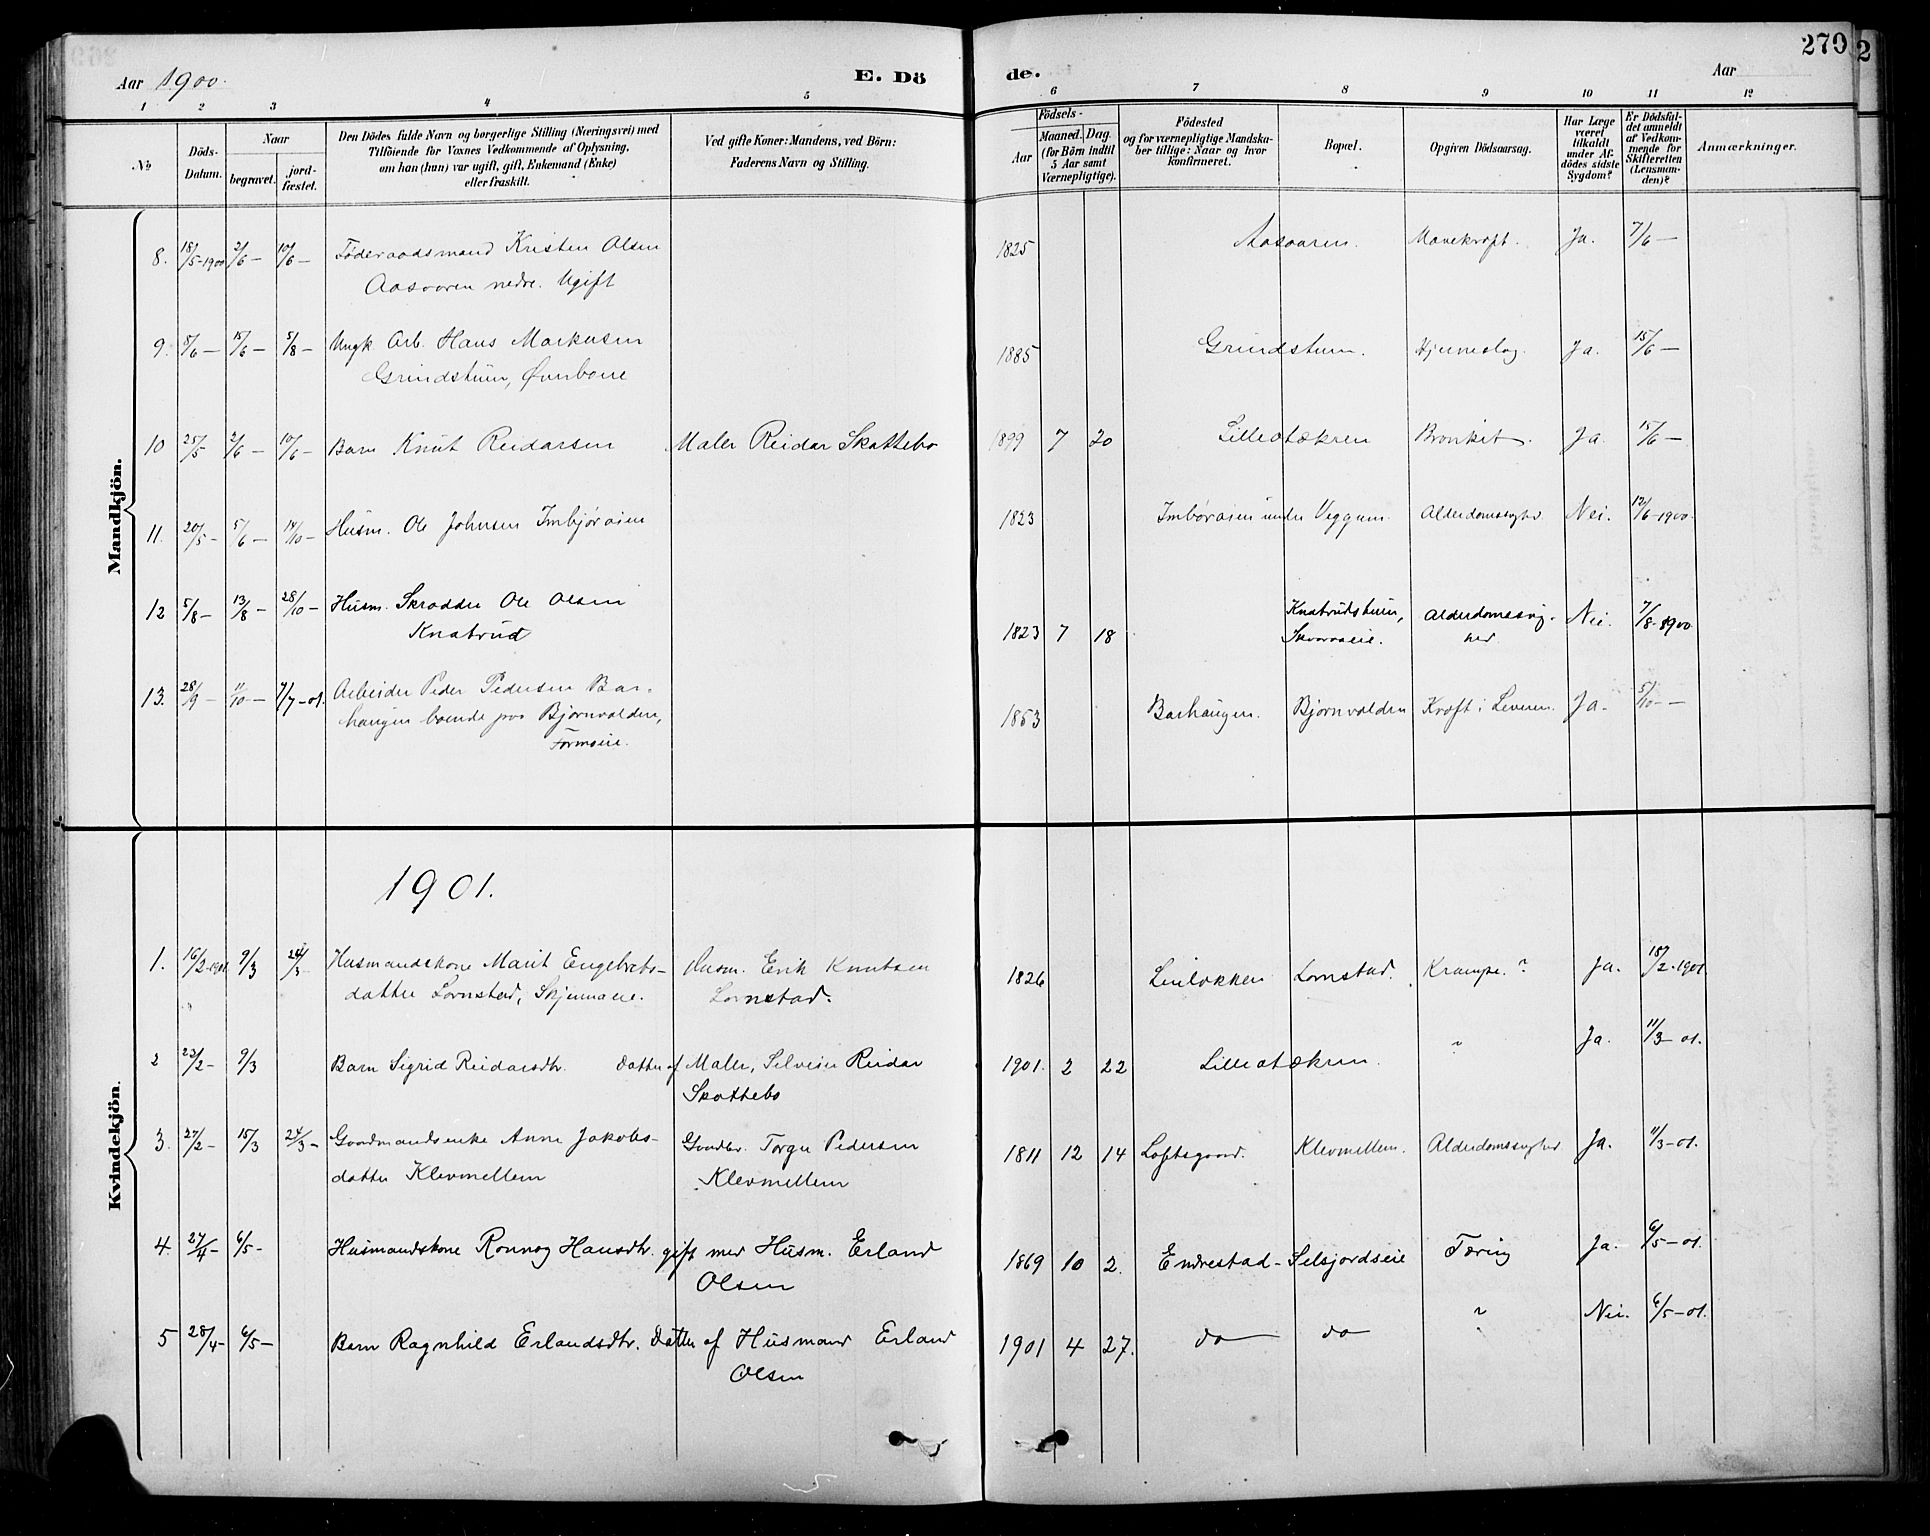 270
2
Aar 1900.
E. Dö
de.
Aar
1 2 3 4 5 6 7 8 9 10 11 12
No
Döds-Datum.
Naar
begravet.
jord-fæstet.
Den Dödes fulde Navn og borgerlige Stilling (Næringsvei) med
Tilföiende for Voxnes Vedkommende af Oplysning,
om han (hun) var ugift, gift, Enkemand (Enke)
eller fraskilt.
Ved gifte Koner: Mandens, ved Börn:
Faderens Navn og Stilling.
Födsels-
Aar
Maaned. Dag.
(for Börn indtil
5 Aar samt
Værnepligtige).
Födested
og for værnepligtige Mandska-
ber tillige: Naar og hvor
konfirmeret.
Bopæl.
Opgiven Dödsaarsag.
Har Læge
været
tilkaldt
under Af-
dödes sidste
Sygdom?
Er Dödsfal-
det anmeldt
af Vedkom-
mende for
Skifteretten
(Lensman-
den)?
Anmærkninger.
Mandkjön.
8. 18/5-1900 2/6- 10/6- Föderaadsmand Kristen Olsen 1825 Aasaaren. Mavekræft. Ja. 7/6-
Aasaaren nedre. Ugift
9. 8/6- 15/6- 5/8- Ungk. Arb. Hans Markusen 1885 Grindstuen. Hjerneslag. Ja. 15/6-
Grindstuen,
10 25/5 2/6- 10/6- Barn Knut Reidarsen Maler Reidar Skattebo 1899 7 20 Lillestækren Bronkit. Ja. 15/6-
11. 20/5- 5/6- 14/10- Husm. Ole Johnsen Imbjöraien 1823 Imböraien under Veggum. Alderdomssvaghd. Nei. 12/6-1900.
12 5/8- 13/8- 28/10- Husm. Skrædder Ole Olsen 1823 7 18 Knatrudstuen, Alderdomssvag- Nei. 7/8-1900
Knatrud Skaaraeie. hed.
13. 28/9- 11/10- 7/7-01. Arbeider Peder Pedersen Bar- 1853 Barhaugen. Bjørnvolden Kræft i Leveren. Ja- 5/10-
haugen boende paa Bjørnvolden,
Formoeie.
Kvindekjön.
1901.
1. 16/2-1901 9/3 24/3- Husmandskone Marit Engebrets- Husm. Erik Knutsen 1826 Linløkken Lornstad. Krampe. ? Ja. 18/2-1901
datter Lornstad, Lornstad.
2 23/2- 9/3 Barn Sigrid Reidarsdtr. Datter af Maler, Reidar 1901. 2 22 Lillestækren. " Ja. 11/3-01.
Skattebo
3. 27/2- 15/3 24/3- Gaardmandsenke Anne Jakobs- Gaardbr. Torger Pedersen 1811 12 14 Loftsgaard. Klevmellem. Alderdomssvaghed Ja. 11/3-01.
datter Klevmellem Klevmellem
4 27/4- 6/5- Husmandskone Ronnog Hansdtr. gift med Husm. Erland 1869 10 2. Endrestad- Selsjordseie Tæring Ja. 6/5-01.
Olsen
5 28/4- 6/5- Barn Ragnhild Erlandsdtr. Datter af Husmand Erland 1901 4 27. do do " Nei. 6/5-01.
Olsen